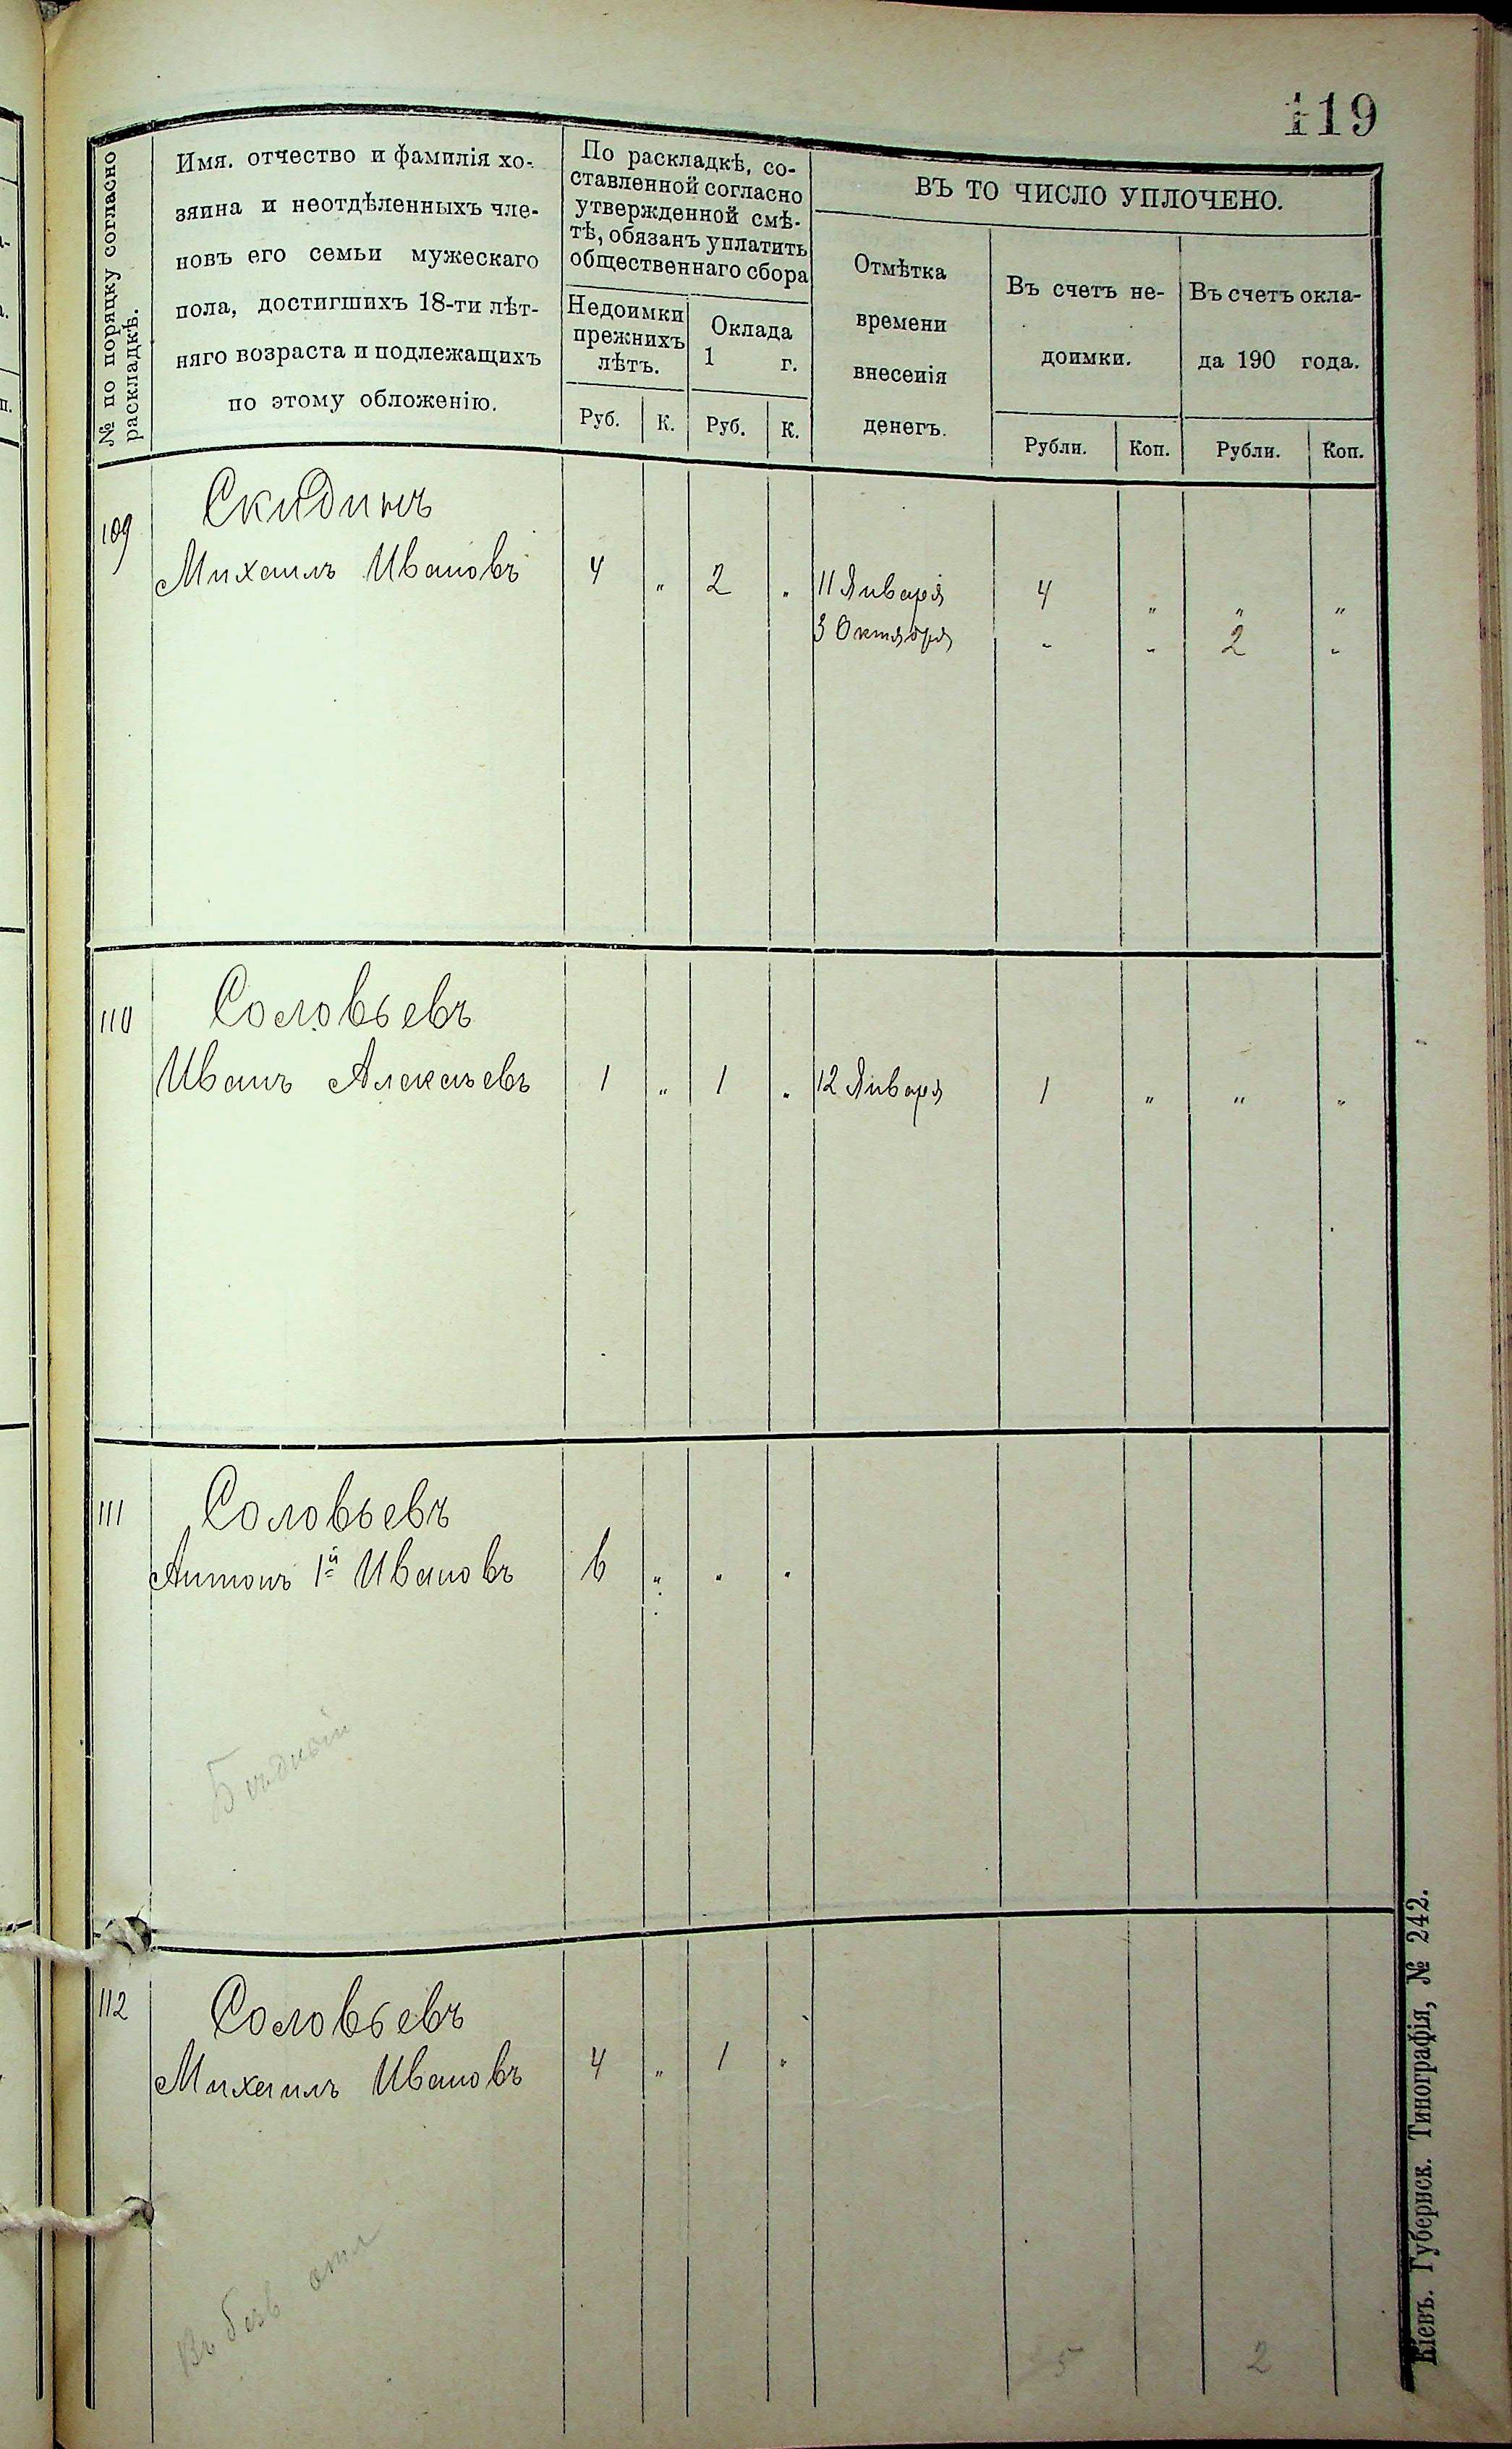 119
№ по порядку согласно
раскладкѣ.
Имя. отчество и фамилія хо-
зяина и неотдѣленныхъ чле-
новъ его семьи мужескаго
пола, достигшихъ 18-ти лѣт-
няго возраста и подлежащихъ
по этому обложенію.
По раскладкѣ, со-
ставленной согласно
утвержденной смѣ-
тѣ, обязанъ уплатить
общественнаго сбора
Недоимки
прежнихъ
лѣтъ.
Оклада
1 г.
Руб. К. Руб. К.
ВЪ ТО ЧИСЛО УПЛОЧЕНО.
Отмѣтка
времени
внесенія
денегъ.
Въ счетъ не-
доимки.
Въ счетъ окла-
да 190 года.
Рубли. Коп. Рубли. Коп.
109 Скидинъ
Михаилъ Ивановъ 4 „ 2 „ 11 Января 4 „ „ „
3 Октября „ „ 2 „
110 Соловьевъ
Иванъ Алексѣевъ 1 „ 1 „ 12 Января 1 „ „ „
111 Соловьевъ
Антонъ 1й Ивановъ 6 „ „ „
Бѣдный
112 Соловьевъ
Михаилъ Ивановъ 4 „ 1 „
Въ безв отл
5 2
Кіевъ. Губернск. Типографія, № 242.